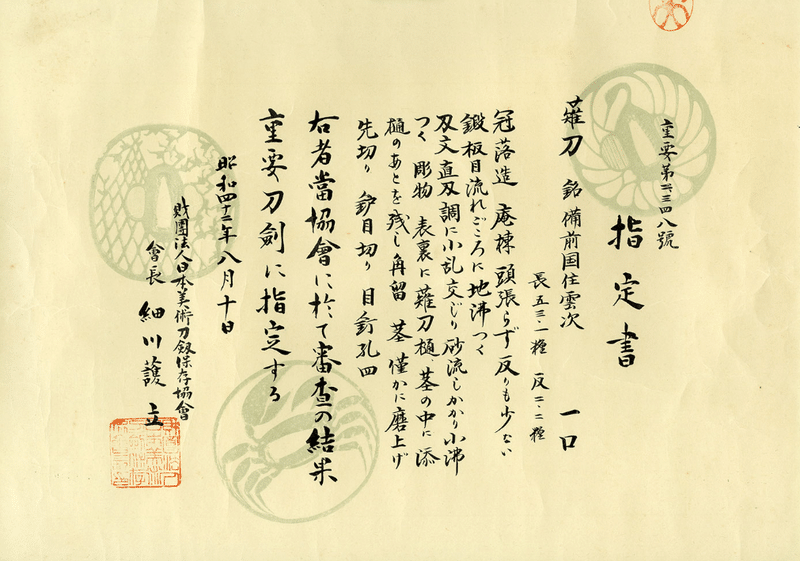 重要第二三四八號
指定書
薙刀 銘 備前国住雲次 一口
長 五三・一糎 反 二・二糎
冠落造 庵棟 頭張らず 反りも少ない
鍛板目流れごころに地沸つく
刃文直刃調に小乱交じり 砂流しかかり小沸
つく 彫物 表裏に薙刀樋、茎の中に添
樋のあとを残し角留 茎 僅かに磨上げ
先切り 鑢目切り 目釘孔四
右者當協會に於て審査の結果
重要刀劍に指定する
昭和四十二年八月十日
財團法人日本美術刀劔保存協會
會長 細川護立